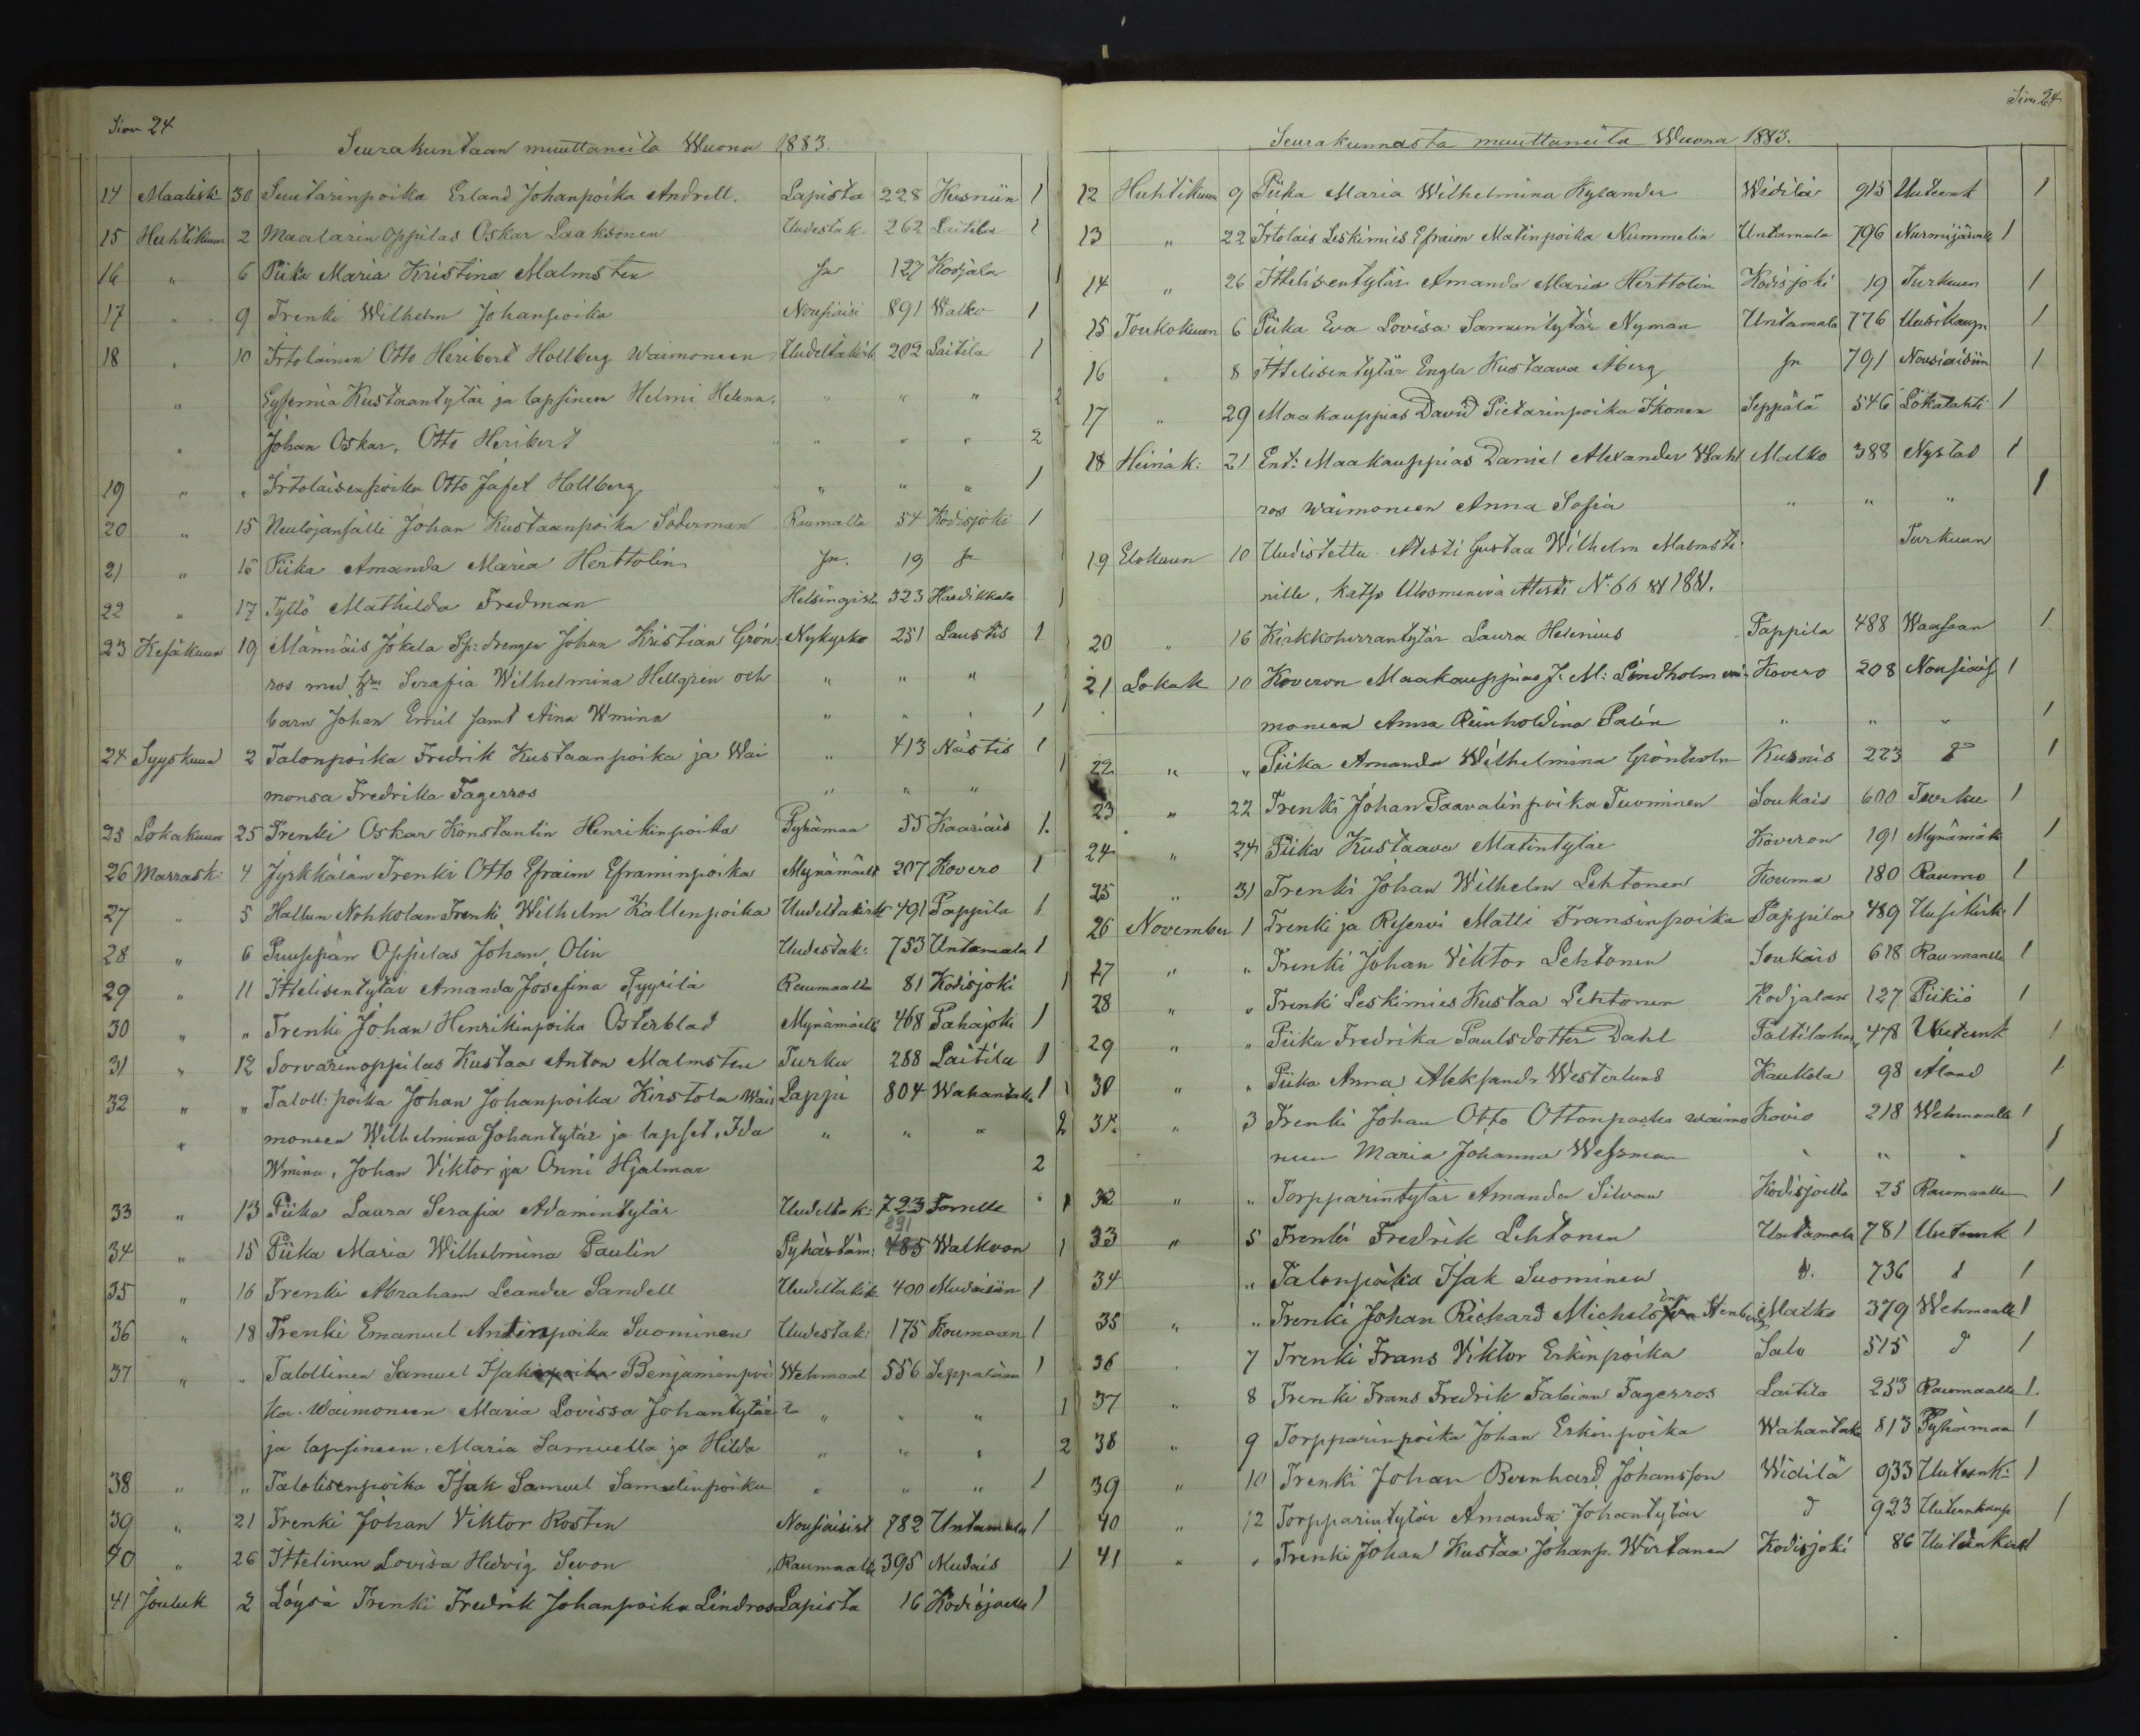 Sivu 24
Seurakuntaan muuttaneita Wuona 1883.
14 Maalisk 30 Suutarinpoika Erland Johanpoika Andrell. Lapista 228 Kusniin 1
15 Huhtikuun 2 Maalarin Oppilas Oskar Laaksonen Uudestak 262 Laitila 1
16 " 6 Piika Maria Kristina Malmsten 127 Kodjala 1
17 " 9 Trenki Wilhelm Johanpoika Nousiaisi 891 Walko 1
18 " 10 Irtolainen Otto Heribert Hollberg Waimoneen Uudeltakirk 202 Laitila 1
" Eufemia Kustaantytär ja lapsineen Helmi Helena, " " " 2
" Johan Oskar, Otto Heribert " " " " 2
19 " " Irtolaisenpoika Otto Jafet Hollberg " " " 1
20 " 15 Neulojansälli Johan Kustaanpoika Söderman Raumalta 54 Kodisjoki 1
21 " 16 Piika Amanda Maria Herttolin 19 1
22 " 17 Tyttö Mathilda Fredman Helsingistä 323 Haukkala 1
23 Kesäkuun 19 Männäis Jokela Sp: drengen Johan Kristian Grön- Nykyrko 251 Laustis 1
ros med Serafia Wilhelmina Hellgren och " " "
barn Johan Emil samt Aina Wmina " " " 1
24 Syyskuun 2 Talonpoika Fredrik Kustaanpoika ja Wai " 413 Nästis 1
monsa Fredrika Fagerros " " " 1
25 Lokakuun 25 Trenki Oskar Konstantin Henrikinpoika Pyhämaa 55 Kaariais 1.
26 Marrask: 4 Jyrkkälän Trenki Otto Efraim Efraiminpoika Mynämäelt 207 Kovero 1
27 " 5 Hallun Nohkolan Trenki Wilhelm Kallenpoika Uudeltakirk 491 Pappila 1
28 " 6 Puusepän Oppilas Johan Olin Uudestak: 753 Untamala 1
29 " 11 Ittelisentytär Amanda Josefina Pyyrilä Raumaalta 81 Kodisjoki 1
30 " " Trenki Johan Henrikinpoika Österblad Mynämäelt 468 Pahajoki 1
31 " 12 Sorvarinoppilas Kustaa Anton Malmsten Turku 288 Laitila 1
32 " " Taloll: poika Johan Johanpoika Kirstola Wai Lappi 804 Wahantalta 1
" moneen Wilhelmina Johantytär ja lapset, Ida " " " 2
Wmina, Johan Viktor ja Onni Hjalmar 2
33 " 13 Piika Laura Serafia Adamintytär Uudeltak: 723 Torrelle 1
891
34 " 15 Piika Maria Wilhelmina Paulin Pyhästäm: 485 Walkoon 1
35 " 16 Trenki Abraham Leander Sandell Uudeltakik 400 Mudaisiin 1
36 " 18 Trenki Emanuel Antinpoika Suominen Uudestak: 175 Koumaan 1
37 " " Talollinen Samuel Isakinpoika Benjaminpoi Wehmaal 556 Seppälään 1
ka. Waimoneen Maria Lovissa Johantytär ta " " " 1
ja lapsineen, Maria Samuella ja Hilda " " " 2
38 " " Talolisenpoika Isak Samuel Samulinpoika " " " 1
39 " 21 Trenki Johan Viktor Rosten Nousiaisist 782 Untamala 1
40 " 26 Ittelinen Lovisa Hedvig Sevon Raumaalta 395 Mudais 1
41 Jouluk 2 Löysä Trenki Fredrik Johanpoika Lindros Lapista 16 Kodisjoelle 1
Sivu 24
Seurakunnasta muuttaneita Wuona 1883.
12 Huhtikuun 9 Piika Maria Wilhelmina Kylander Widilä 915 Uuteenk 1
13 " 22 Irtolais Leskimies Efraim Matinpoika Nummelin Untamala 796 Nurmijärvelle 1
14 " 26 Ittelisentytär Amanda Maria Herttolin Kodisjoki 19 Turkuun 1
15 Toukokuun 6 Piika Eva Lovisa Samuntytär Nyman Untamala 776 Uusikaup 1
16 " 8 Ittelisentytär Engla Kustaava Åberg 791 Nousiaisiin 1
17 " 29 Maakauppias David Pietarinpoika Ikonen Seppälä 546 Lokalahti 1
18 Heinäk: 21 Ent: Maakauppias Daniel Alexander Wahl Malko 388 Nystad 1
ros waimoneen Anna Sofia " " " 1
19 Elokuun 10 Uudistettu Atesti Gustaa Wilhelm Malmste: Turkuun
nille, katso Ulosmenevä Atesti No. 66 1881.
20 " 16 Kirkkoherrantytär Laura Helenius Pappila 488 Waasaan 1
21 Lokak 10 Koveron Maakauppias J. M: Lindholm wai- Kovero 208 Nousiais 1
moneen Anna Reinholdina Palin " " " 1
22 " " Piika Amanda Wilhelmina Grönholm Kusnis 223 d 1
23 " 22 Trenki Johan Paavalinpoika Tuominen Soukais 600 Turku 1
24 " 24 Piika Kustaava Matintytär Koveron 191 Mynämäk 1
25 " 31 Trenki Johan Wilhelm Lehtonen Kouma 180 Raumo 1
26 November 1 Trenki ja Reservi Matti Fransinpoika Pappila 489 Uusikirk: 1
27 " " Trenki Johan Viktor Lehtonen Soukais 618 Raumaalle 1
28 " " Trenki Leskimies Kustaa Lehtonen Kodjalan 127 Piikiö 1
29 " " Piika Fredrika Paulsdotter Dahl Paltilahan 478 Uuteenk 1
30 " " Piika Anna Aleksandr Westerlund Kaukola 98 Åland 1
31. " 3 Trenki Johan Otto Ottonpoika waimo Kovio 218 Wehmaalle 1
neen Maria Johanna Wessman " " " 1
32 " " Torpparintytär Amanda Silvan Kodisjoelta 25 Raumaalle 1
33 " 5 Trenki Fredrik Lehtonen Untamala 781 Uuteenk 1
34 " Talonpoika Isak Suominen d. 736 d 1
35 " " Trenki Johan Richard Michels Stenberg Malko 379 Wehmaalle 1
36 " 7 Trenki Frans Viktor Erkinpoika Salo 515 d 1
37 " 8 Trenki Frans Fredrik Fabian Fagerros Laitila 253 Raumaalle 1.
38 " 9 Torpparinpoika Johan Erkinpoika Wahantaka 813 Pyhämaa 1
39 " 10 Trenki Johan Bernhard Johansson Widilä 933 Uuteenk: 1
40 " 12 Torpparintytär Amanda Johantytär d 923 Uuteenkaup 1
41 " " Trenki Johan Kustaa Johanp. Wirtanen Kodisjoki 86 Uuteenkirk 1